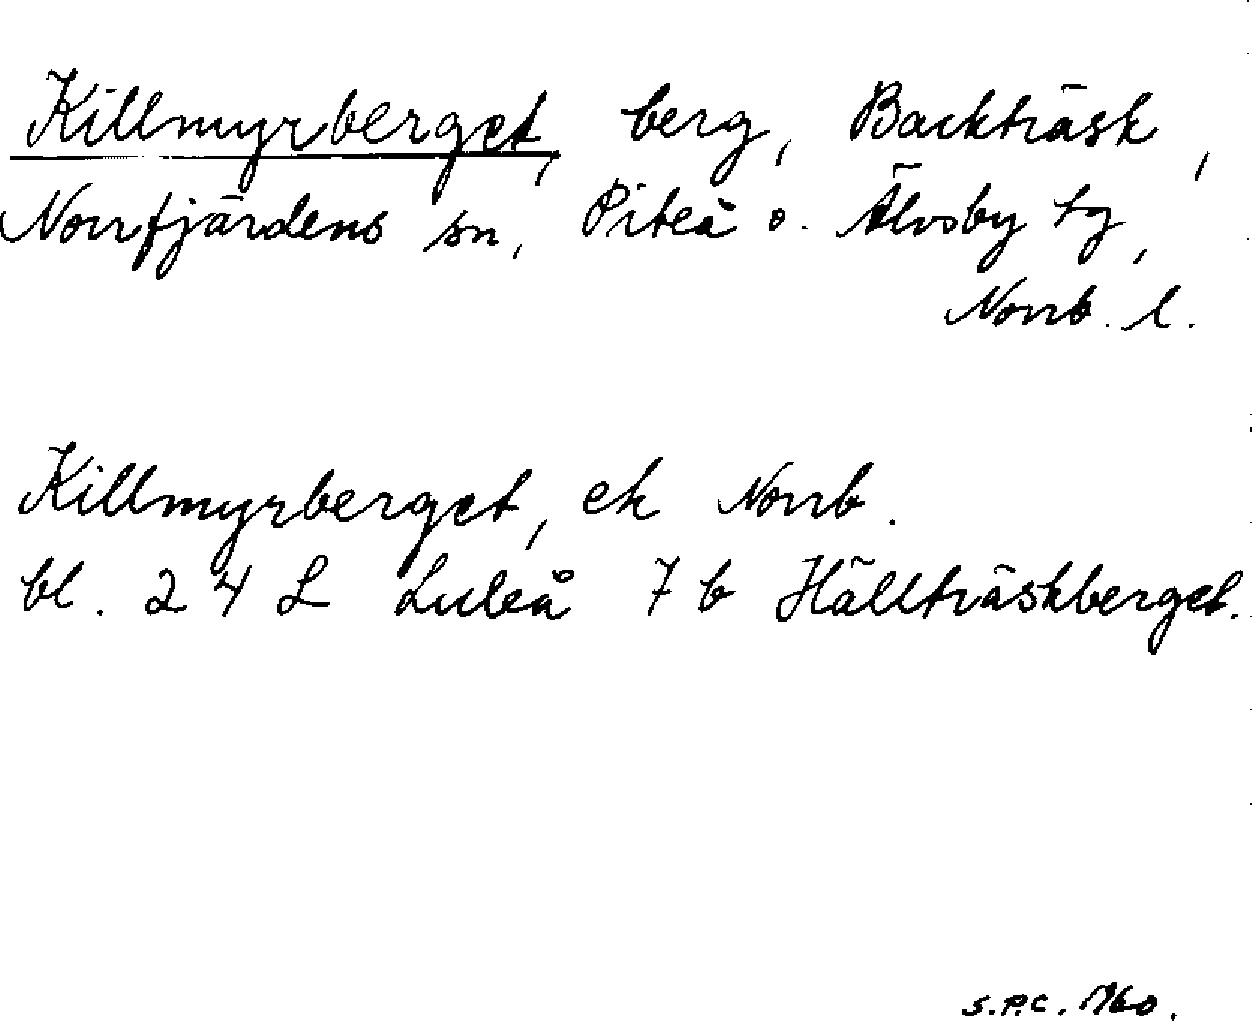 Killmyrberget, berg, Backträsk,
Norrfjärdens sn, Piteå o. Älvsby tg,
Norrb. l.
Killmyrberget, ek Norrb.
bl. 24 L Luleå 7 b Hällträskberget.
S.P.C. 1960.